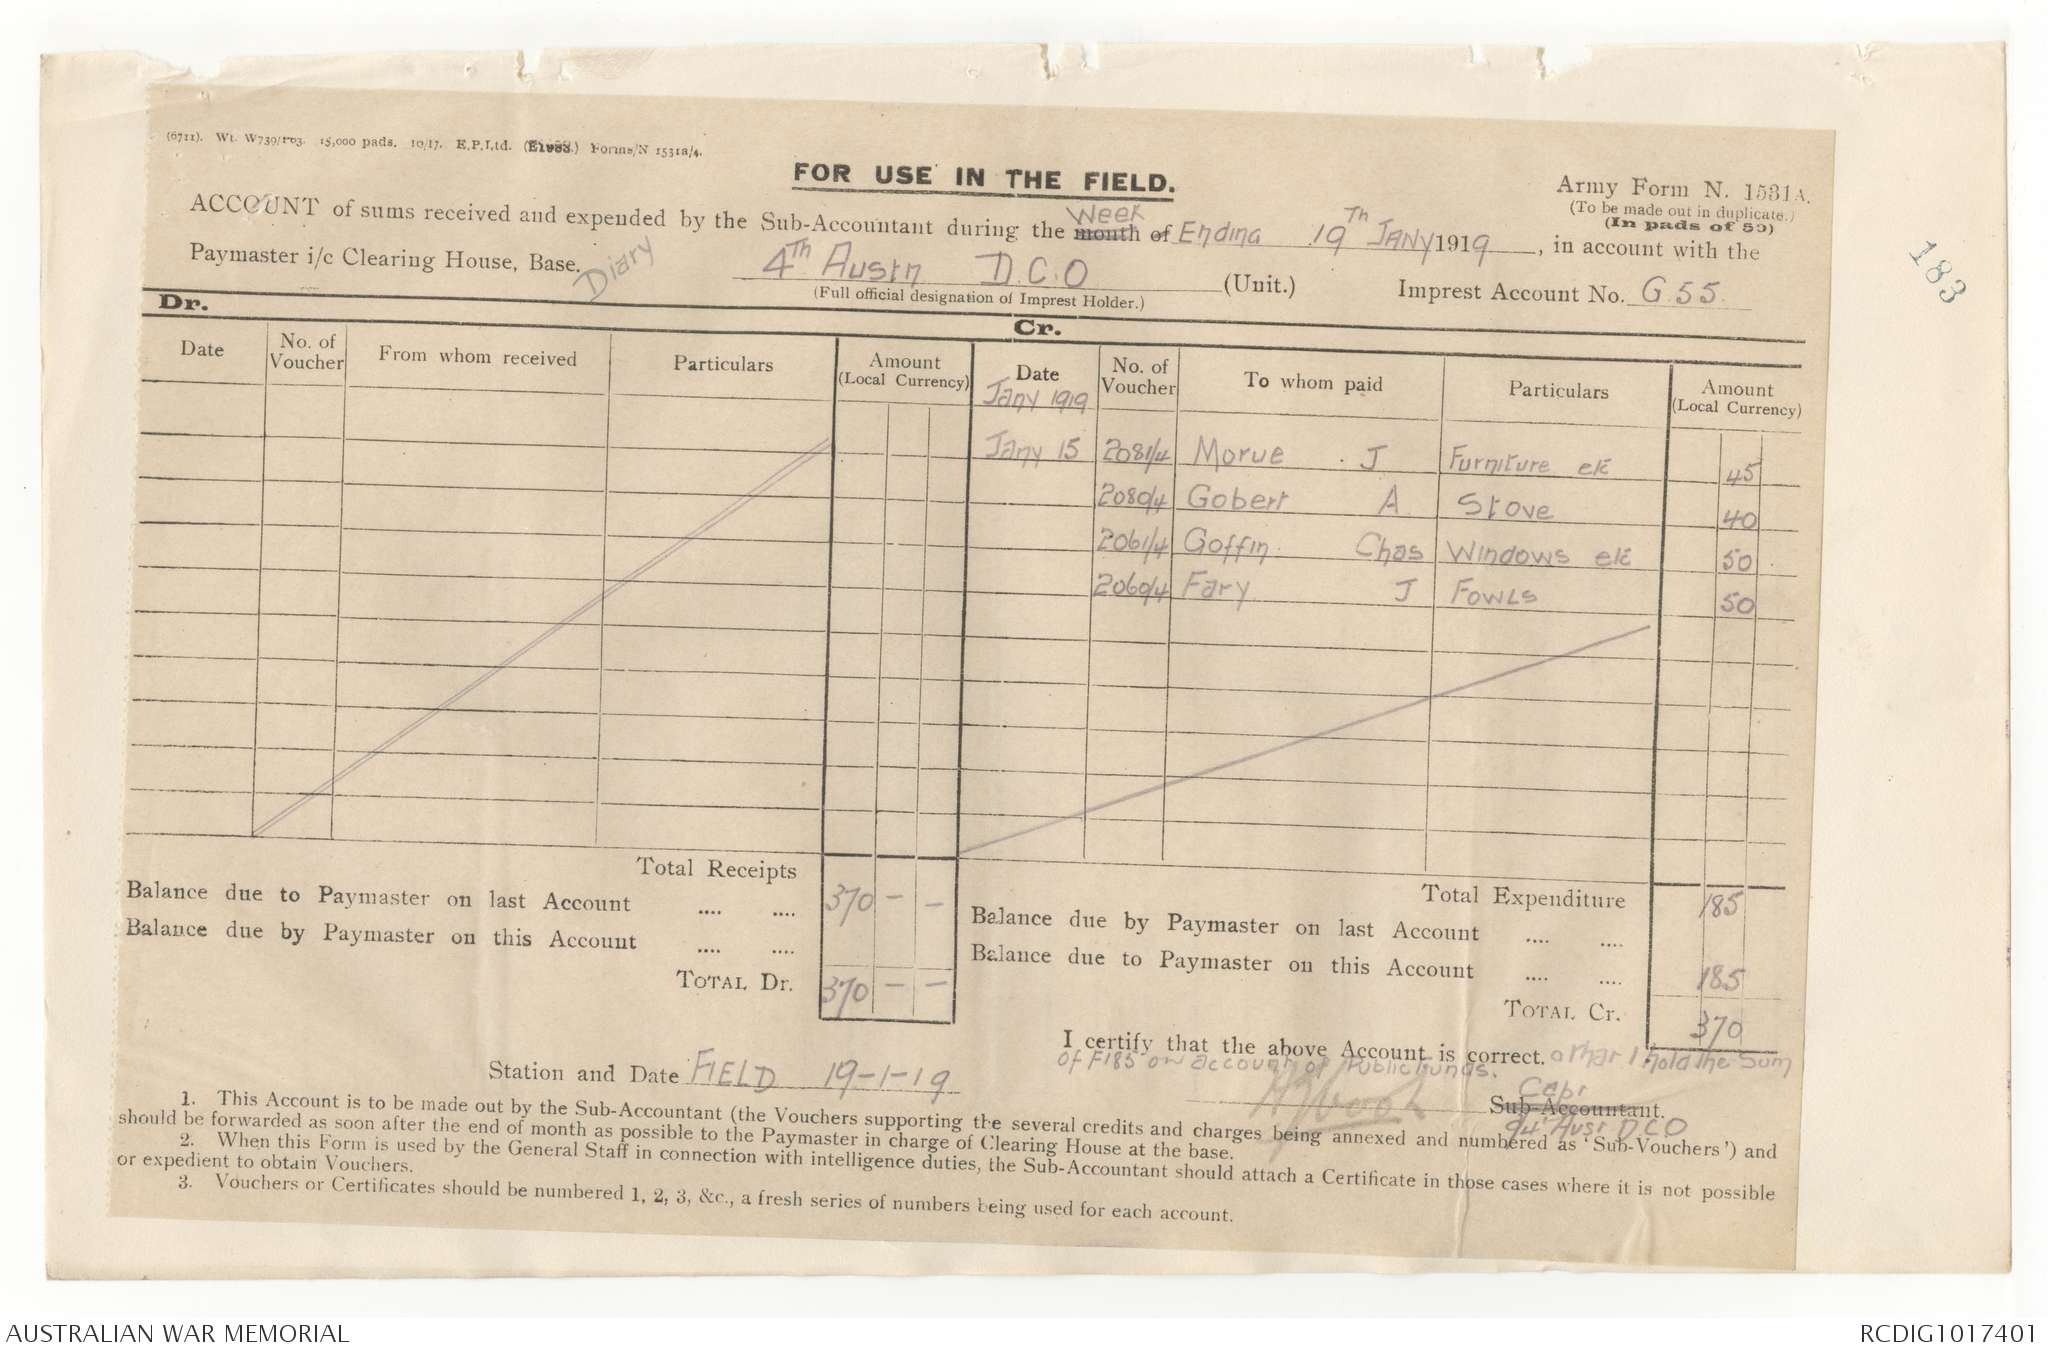 (6711). Wt. W739/P03. 15,000 pads. 10/17. E.P.Ltd. Forms/N 1531a/4.
FOR USE IN THE FIELD.
Army Form N. 1531A.
(To be made out in duplicate.)
(In pads of 50)
183
ACCOUNT of sums received and expended by the Sub-Accountant during the month of Week Ending 19th Jany 1919, in account with the
Paymaster i/c Clearing House, Base. Diary 4th Austn D.C.O (Unit.) Imprest Account No. G.55.
(Full official designation of Imprest Holder.)
Dr.
Cr.
Date No. of Voucher From whom received Particulars Amount (Local Currency) Date No. of Voucher To whom paid Particulars Amount (Local Currency)
Jany 1919
Jany 15 2081/4 Morue J Furniture etc 45
2080/4 Gobert A Stove 40
2061/4 Goffin Chas Windows etc 50
2060/4 Fary J Fowls 50
Total Receipts
Balance due to Paymaster on last Account .... .... 370 — —
Balance due by Paymaster on this Account .... ....
TOTAL Dr. 370 — —
Total Expenditure 185
Balance due by Paymaster on last Account .... ....
Balance due to Paymaster on this Account .... .... 185
TOTAL Cr. 370
I certify that the above Account is correct. & that I hold the sum
of F185 on account of Public Funds.
Station and Date FIELD 19-1-19
Capt
Sub-Accountant.
Aust D.C.O
1. This Account is to be made out by the Sub-Accountant (the Vouchers supporting the several credits and charges being annexed and numbered as 'Sub-Vouchers') and
should be forwarded as soon after the end of month as possible to the Paymaster in charge of Clearing House at the base.
2. When this Form is used by the General Staff in connection with intelligence duties, the Sub-Accountant should attach a Certificate in those cases where it is not possible
or expedient to obtain Vouchers.
3. Vouchers or Certificates should be numbered 1, 2, 3, &c., a fresh series of numbers being used for each account.
AUSTRALIAN WAR MEMORIAL
RCDIG1017401